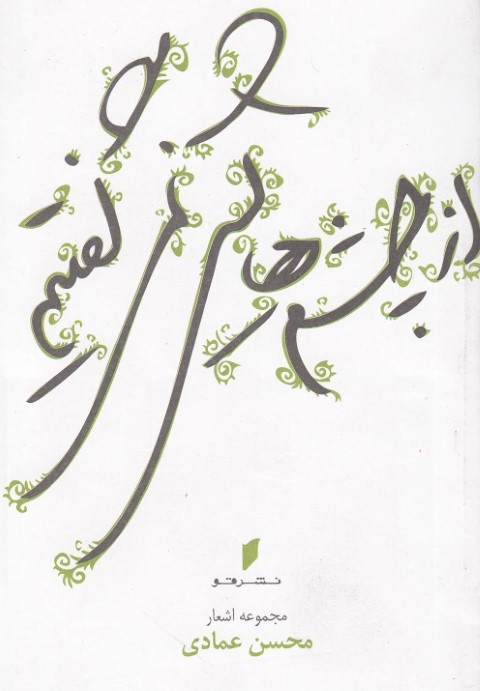 از چشم‌هایش نمی گفتیم
نشر قو
مجموعه اشعار
محسن عمادی